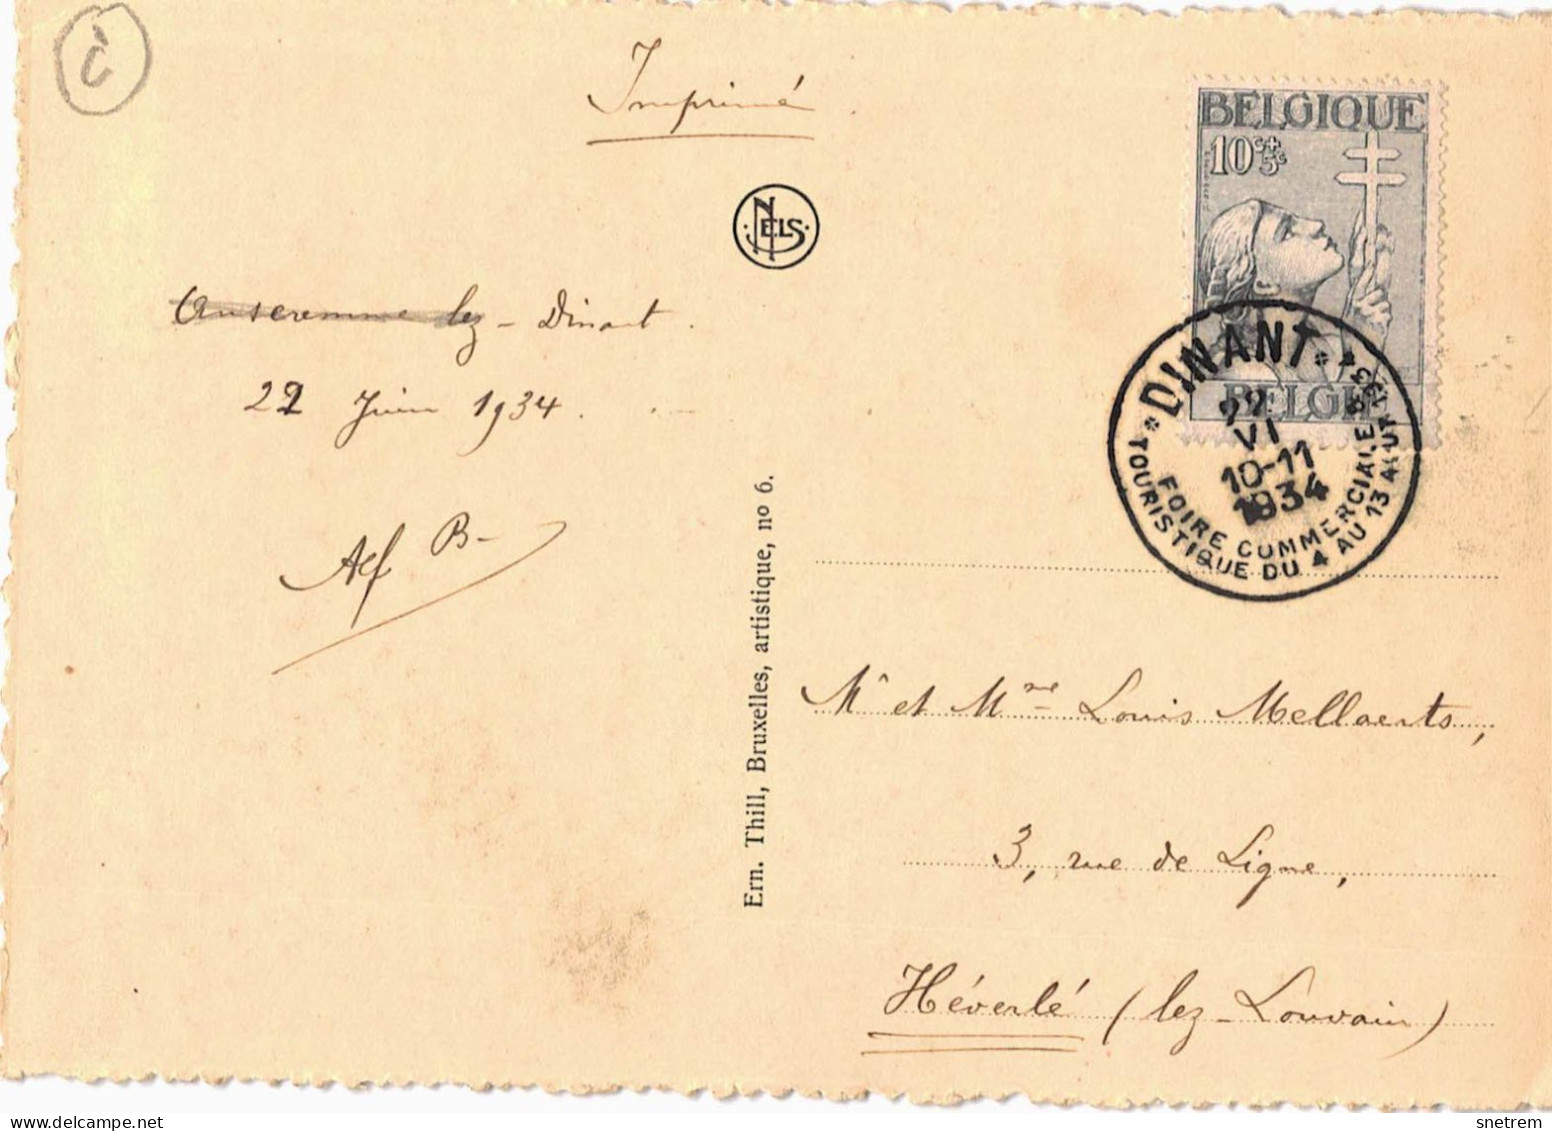 Imprimé
BELGIQUE
10 c + 5 c
BELGIË
NELS
Anseremme lez - Dinant.
22 Juin 1934.
Alf B-
DINANT
22
VI
10-11
1934
FOIRE COMMERCIALE &
TOURISTIQUE DU 4 AU 13 AOUT 1934
Ern. Thill, Bruxelles, artistique, no 6.
Mr et Mme Louis Mellaerts,
3, rue de Ligne,
Héverlé (lez-Louvain)
delcampe.net
snetrem